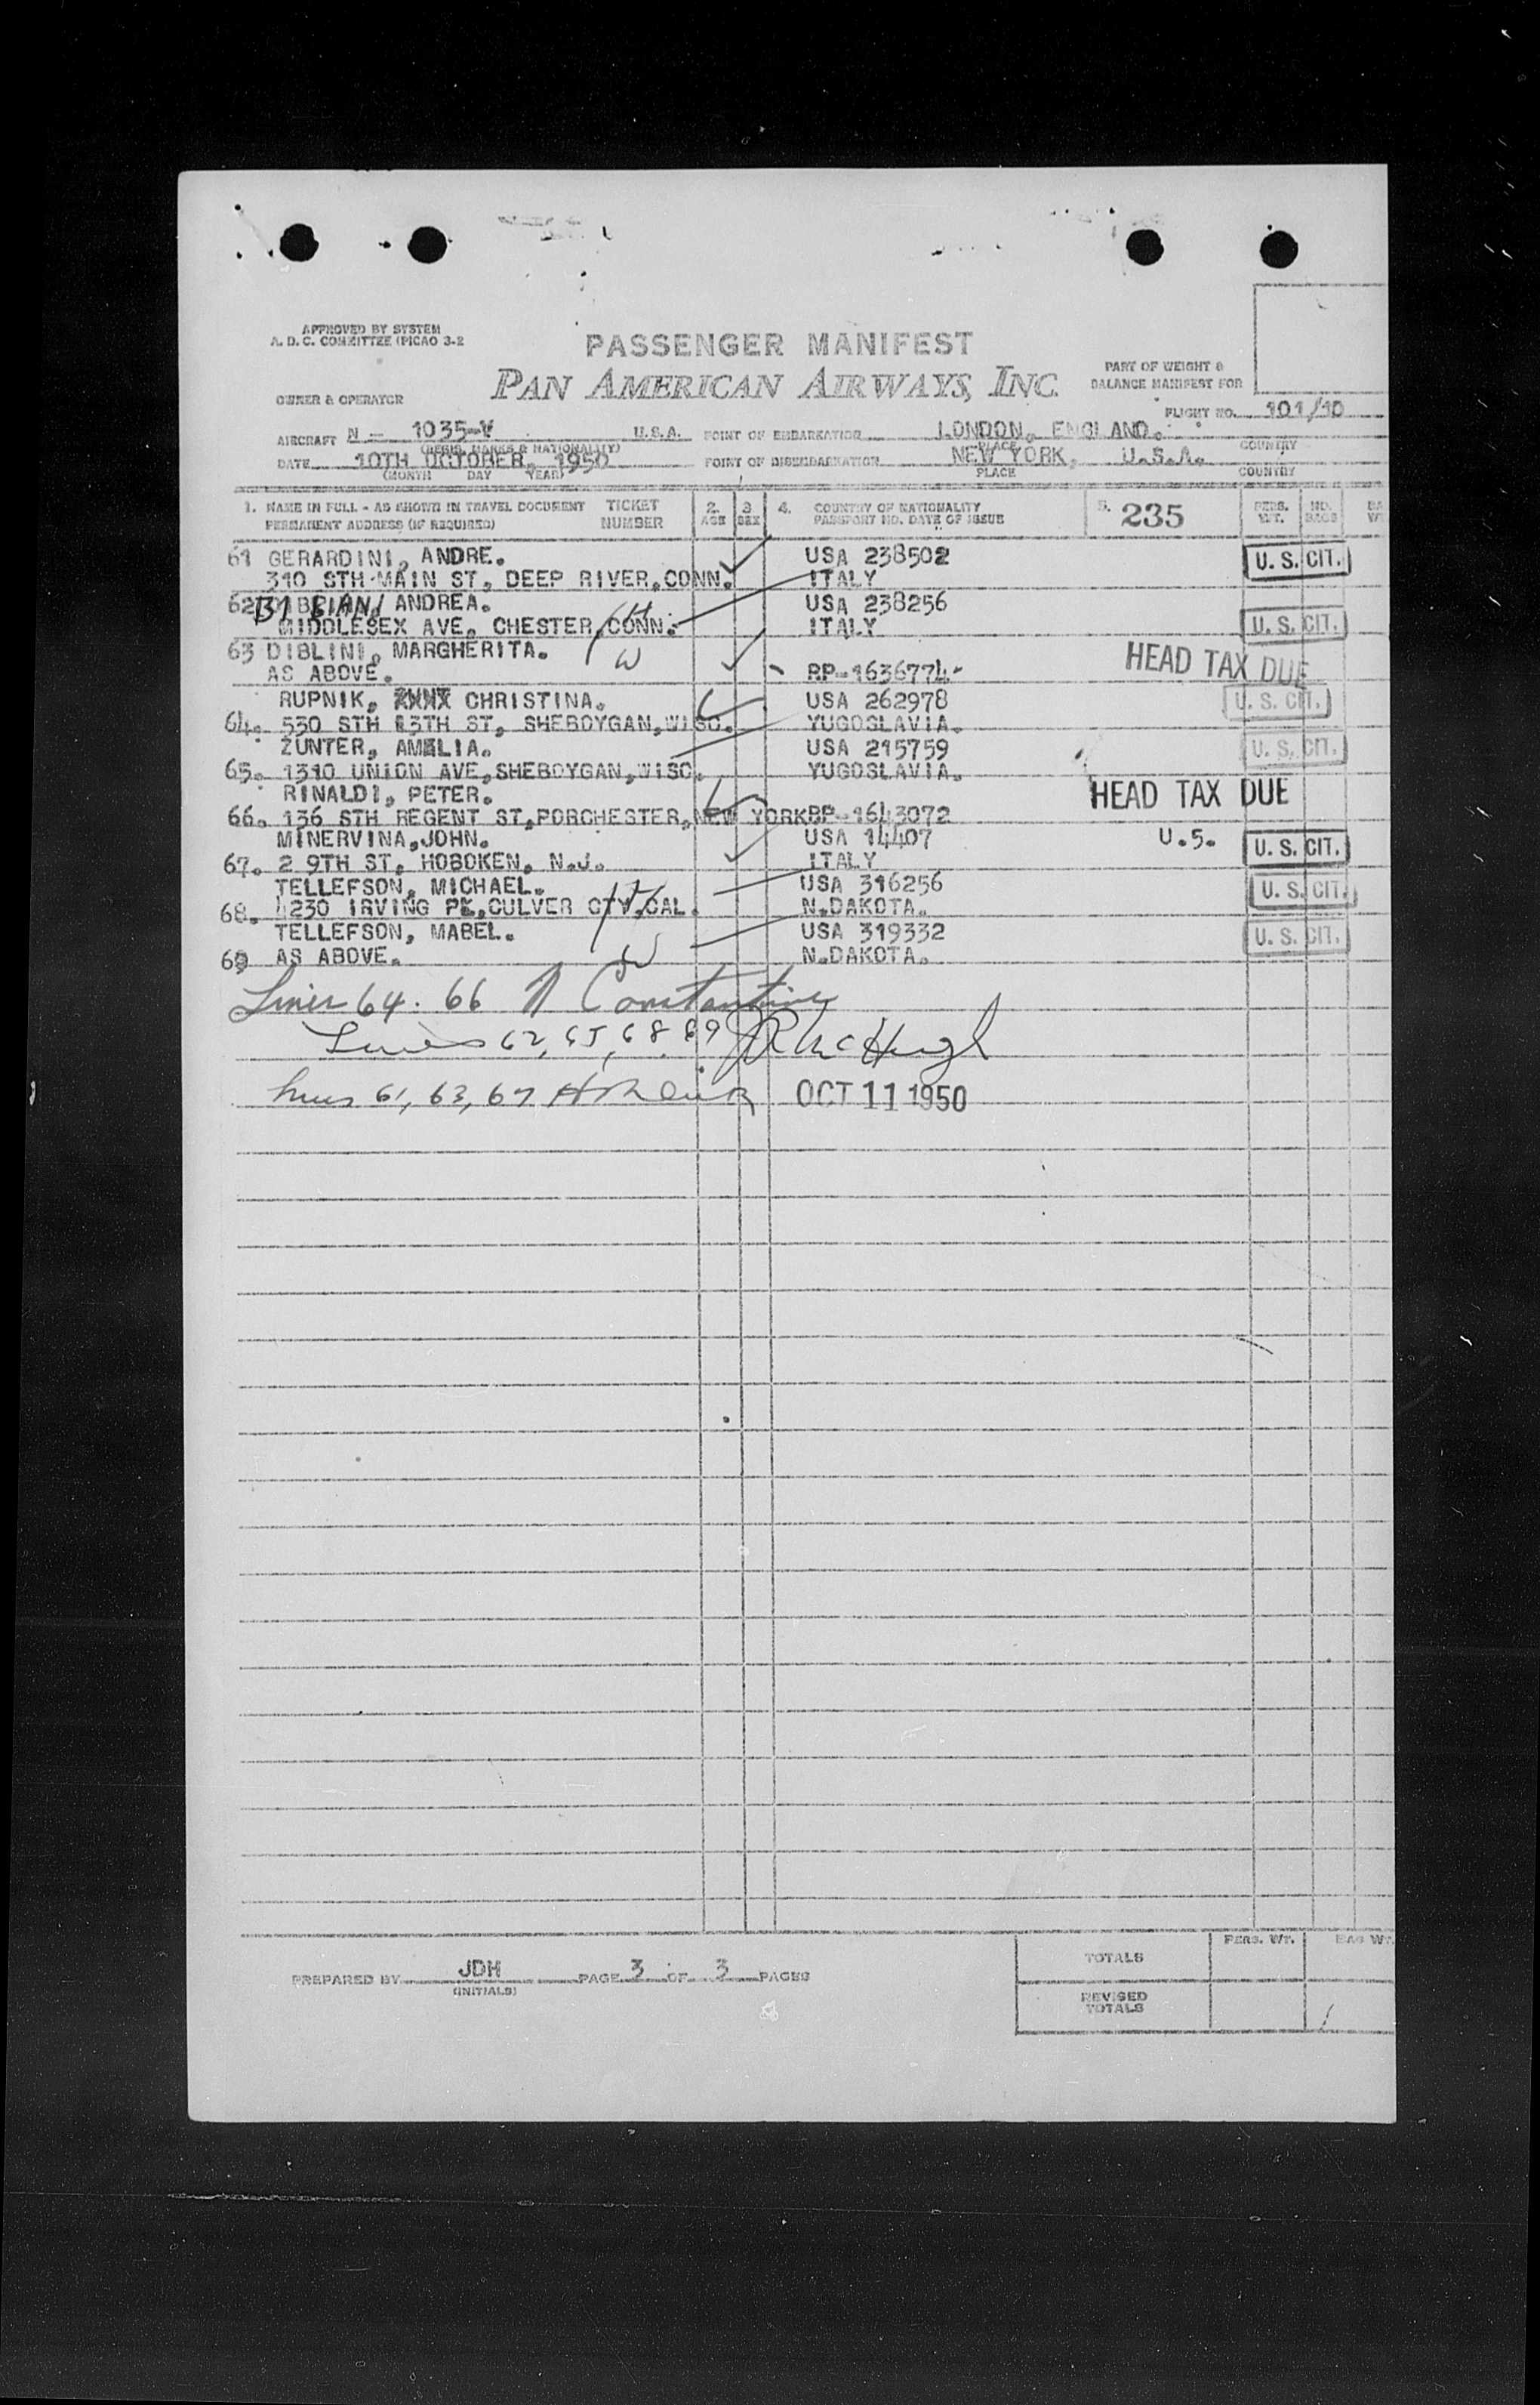 APPROVED BY SYSTEM
A. D. C. COMMITTEE (PICAO 3-2
PASSENGER MANIFEST
PAN AMERICAN AIRWAYS, INC.
PART OF WEIGHT &
BALANCE MANIFEST FOR
OWNER & OPERATOR
FLIGHT NO. 101/10
AIRCRAFT N - 1035-V U.S.A. POINT OF EMBARKATION LONDON, ENGLAND.
(REGIS. MARKS & NATIONALITY) PLACE COUNTRY
DATE 10TH OCTOBER, 1950 POINT OF DISEMBARKATION NEW YORK, U.S.A.
(MONTH DAY YEAR) PLACE COUNTRY
1. NAME IN FULL - AS SHOWN IN TRAVEL DOCUMENT TICKET 2. 3. 4. COUNTRY OF NATIONALITY 5. 235 PERS. NO. BA
PERMANENT ADDRESS (IF REQUIRED) NUMBER AGE SEX PASSPORT NO. DATE OF ISSUE WT. BAGS
61 GERARDINI, ANDRE. USA 238502 U. S. CIT.
310 STH MAIN ST, DEEP RIVER, CONN. ITALY
62 ANDREA. USA 238256
MIDDLESEX AVE, CHESTER, CONN. H ITALY U. S. CIT.
63 DIBLINI, MARGHERITA. W HEAD TAX DUE
AS ABOVE. RP-1636774-
RUPNIK, CHRISTINA. USA 262978 U. S. CIT.
64. 530 STH 13TH ST, SHEBOYGAN, WISC. YUGOSLAVIA.
ZUNTER, AMELIA. USA 215759 U. S. CIT.
65. 1310 UNION AVE, SHEBOYGAN, WISC. YUGOSLAVIA.
RINALDI, PETER. HEAD TAX DUE
66. 136 STH REGENT ST, PORCHESTER, NEW YORK RP-1643072
MINERVINA, JOHN. USA 14407 U.S. U. S. CIT.
67. 2 9TH ST, HOBOKEN, N.J. ITALY
TELLEFSON, MICHAEL. USA 316256 U. S. CIT.
68. 4230 IRVING PL, CULVER CTY, CAL. H N.DAKOTA.
TELLEFSON, MABEL. USA 319332 U. S. CIT.
69 AS ABOVE. W N.DAKOTA.
Lines 64. 66 A Constantine
Lines 62, 65, 68 69 McHugh
Lines 61, 63, 67 OCT 11 1950
PREPARED BY JDH PAGE 3 OF 3 PAGES
(INITIALS)
PERS. WT. BAG WT.
TOTALS
REVISED
TOTALS